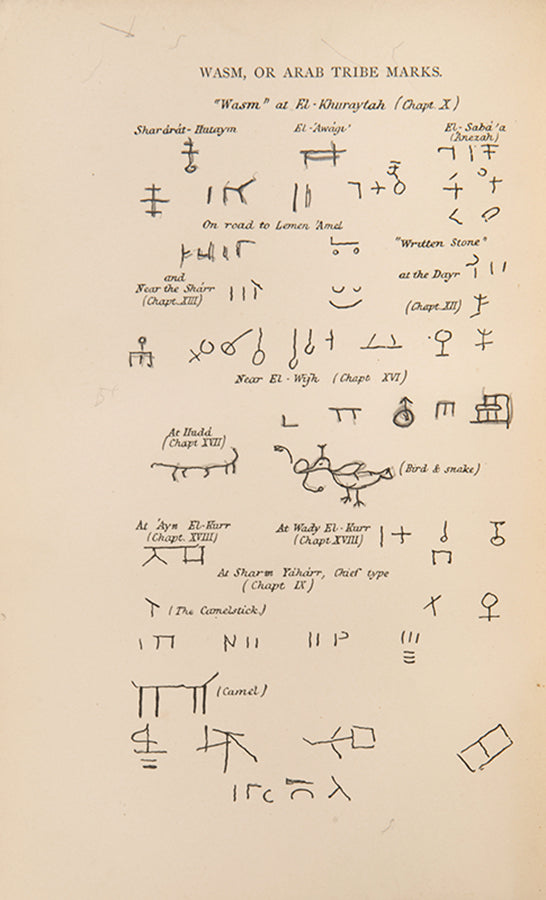 WASM, OR ARAB TRIBE MARKS.
"Wasm" at El-Khuraytah (Chapt. X)
Sharárát-Hutaym
El-'Awági'
El-Sabá'a
(Anezah)
On road to Lemen 'Amel
"Written Stone"
and
Near the Shárr
(Chapt. XIII)
at the Dayr
(Chapt. XII)
Near El-Wijh (Chapt XVI)
At Hudd
(Chapt XVII)
(Bird & snake)
At 'Ayn El-Kurr
(Chapt. XVIII)
At Wady El-Kurr
(Chapt XVIII)
At Sharm Yáhárr, Chief type
(Chapt IX)
(The Camelstick.)
(Camel)